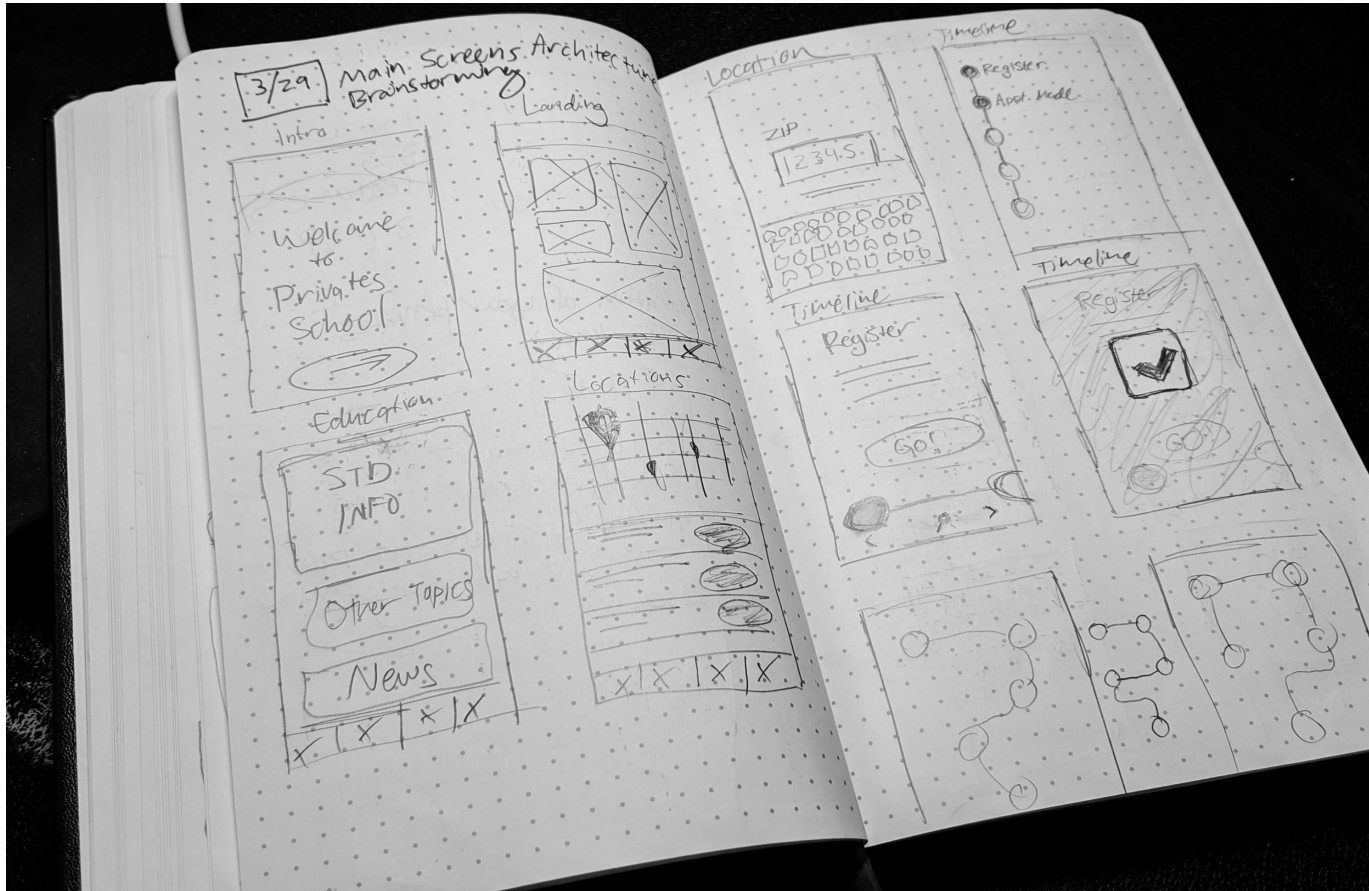 3/29
Main Screens Architecture
Brainstorming
Intro
Welcome
to
Privates
School
Landing
X X X X
Education
STD
INFO
Other Topics
News
X X X X
Locations
X X X X
Location
ZIP
12345
Timeline
Register
Appt. Made
Timeline
Register
GO!
Timeline
Register
GO!